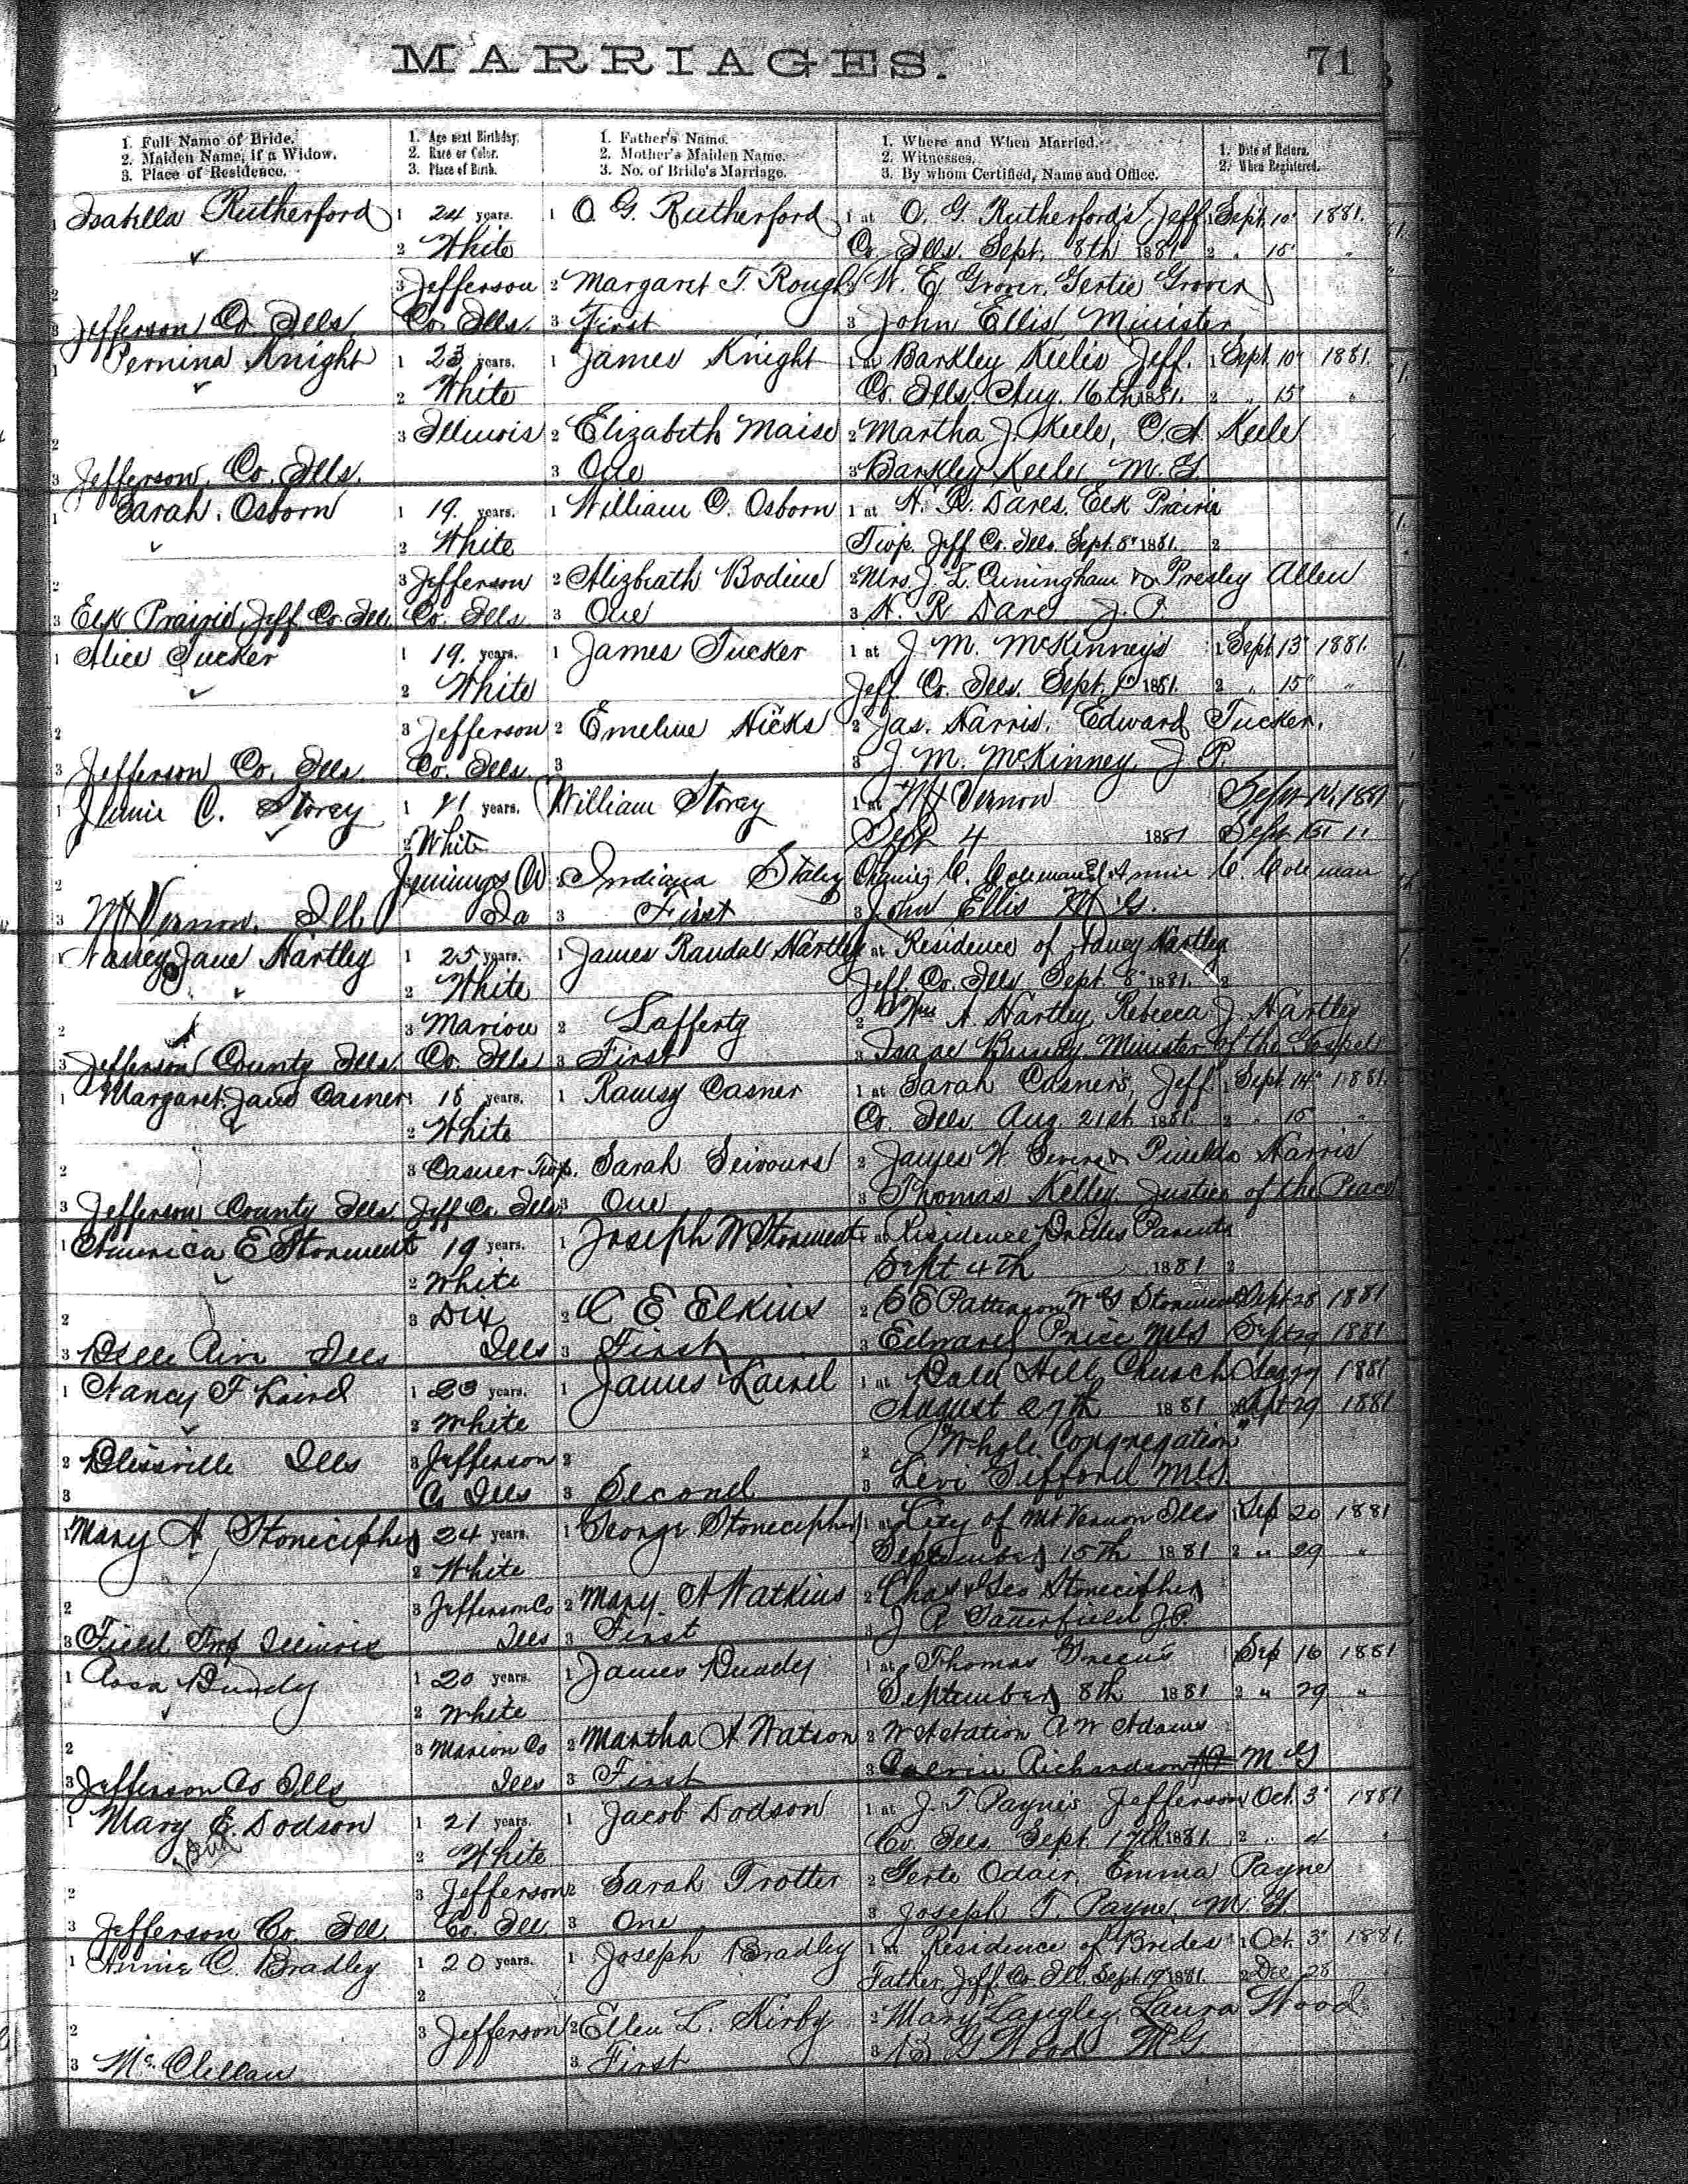 MARRIAGES.
71
1. Full Name of Bride.
2. Maiden Name, if a Widow.
3. Place of Residence.
1. Age next Birthday.
2. Race or Color.
3. Place of Birth.
1. Father's Name.
2. Mother's Maiden Name.
3. No. of Bride's Marriage.
1. Where and When Married.
2. Witnesses.
3. By whom Certified, Name and Office.
1. Date of Return.
2. When Registered.
1 Isabella Rutherford 1 24 years. 1 O. G. Rutherford 1 at O. G. Rutherford's Jeff 1 Sept. 10" 1881.
2 White Co. Ills. Sept. 8th 1881 2 " 15" "
2 3 Jefferson 2 Margaret T. Rough 2 W. E. Grover, Gertie Grover
3 Jefferson Co. Ills. Co. Ills. 3 First 3 John Ellis Minister
1 Pernina Knight 1 23 years. 1 James Knight 1 at Barkley Keelis Jeff. 1 Sept. 10" 1881.
2 White Co. Ills. Aug. 16th 1881. 2 " 15" "
2 3 Illinois 2 Elizabeth Maise 2 Martha J. Keele, C A Keele
3 Jefferson Co. Ills. 3 One 3 Barkley Keele M. G.
1 Sarah. Osborn 1 19. years. 1 William C. Osborn 1 at H. R. Dares. Elk Prairie
2 White Twp. Jeff Co. Ills. Sept. 8" 1881. 2
2 3 Jefferson 2 Alizbeath Bodine 2 Mrs. J. L. Cuningham & Presley Allen
3 Elk Prairie, Jeff. Co. Ills Co. Ills 3 One 3 H. R Dare J. P.
1 Alice Tucker 1 19. years. 1 James Tucker 1 at J. M. McKinney's 1 Sept. 13" 1881.
2 White Jeff. Co. Ills. Sept. 1881. 2 " 15" "
2 3 Jefferson 2 Emeline Hicks 2 Jas. Harris. Edward Tucker.
3 Jefferson Co. Ills. Co. Ills. 3 3 J. M. McKinney. J. P.
1 C. Storey 1 21 years. William Storey 1 at Mt Vernon Sept 14, 1881
2 White Sept 4 1881 Sept 15 "
2 Jennings Co 2 Indiana Staley C. Coleman & Annie C. Coleman
3 Mt Vernon. Ill. 3 First 3 John Ellis M. G.
1 Nancy Jane Hartley 1 25 years. 1 James Randal Hartley at Residence of Nancy Hartley
2 White Jeff. Co. Ills Sept. 8" 1881. 2
2 3 Marion 2 Lafferty 2 Wm A. Hartley, Rebecca J. Hartley
3 Jefferson County Ills. Co. Ills 3 First 3 Isaac Bundy Minister of the Gospel
1 Margaret Jane Casner 1 18 years. 1 Ramsy Casner 1 at Sarah Casners, Jeff. 1 Sept. 14" 1881.
2 White Co. Ills Aug. 21st. 1881. 2 " 15 "
2 3 Casner Twp. Sarah Seivours 2 James W. & Harris
3 Jefferson County Ills. Jeff Co. Ills. 3 One 3 Thomas Kelley Justice of the Peace
1 America E Storment 19 years. 1 Joseph W Storment 1 at Residence Brides Parents
2 White Sept 4th 1881 2
2 3 Dix 2 C E Elkins 2 C E Patterson W G Storment Sept 28 1881
3 Belle Rive Ills Ills 3 First 3 Edward Price MG Sept 29 1881
1 Nancy F Laird 1 23 years. 1 James Laird 1 at Bald Hill Church 1881
2 White August 27th 1881 2 Sept 29 1881
2 Blissville Ills 3 Jefferson 2 2 "Whole Congregation"
3 Co Ills 3 Second 3 Levi Gifford MG
1 Mary A Stonecipher 24 years. 1 George Stonecipher 1 at City of Mt Vernon Ills 1 Sep 20 1881
2 White September 15th 1881 2 " 29 "
2 3 Jefferson Co 2 Mary A Watkins 2 Chas & Geo Stonecipher
3 Field Twp Illinois Ills 3 First 3 J R Satterfield J.P.
1 Rosa Bundy 1 20 years. 1 James Bundy 1 at Thomas Greens Sep 16 1881
2 White September 8th 1881 2 " 29 "
2 3 Marion Co 2 Martha A Watson 2 W A Watson A W Adams
3 Jefferson Co Ills Ills 3 First 3 Calvin Richardson M G
1 Mary E. Dodson 1 21 years. 1 Jacob Dodson 1 at J. T. Payne's Jefferson Oct. 3" 1881
2 White Co. Ills. Sept. 17th 1881. 2 " 4 "
2 3 Jefferson 2 Sarah Trotter 2 Gerte Odair, Emma Payne
3 Jefferson Co. Ill Co. Ill. 3 One 3 Joseph T. Payne, M. G.
1 Annie C. Bradley 1 20 years. 1 Joseph Bradley 1 at Residence of Brides 1 Oct. 3" 1881.
2 Father Jeff. Co. Ill. Sept. 19" 1881. 2 Dec 28
2 3 Jefferson 2 Ellen L. Kirby 2 Mary Langley, Laura Wood
3 McClellan 3 First 3 B G Wood M G